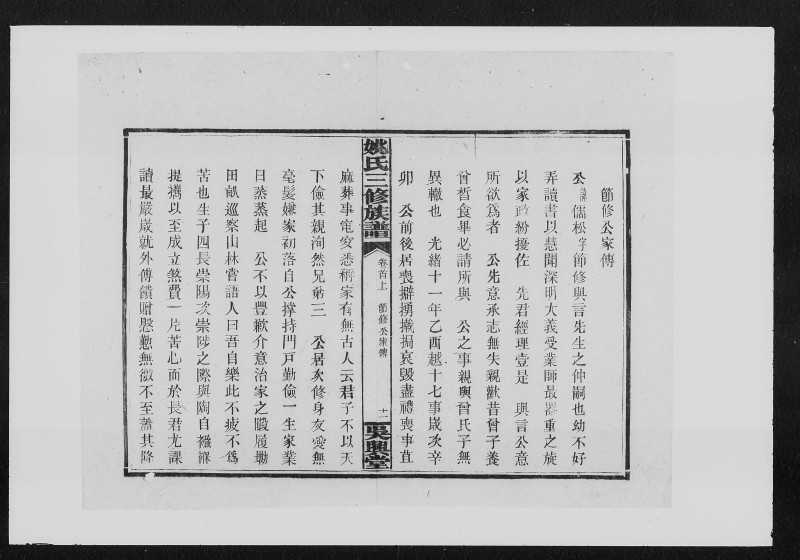 節修公家傳
公諱儒松字節修興言先生之仲嗣也幼不好
弄讀書以慧聞深明大義受業師最器重之旋
以家政紛擾佐 先君經理壹是 興言公意
所欲爲者 公先意承志無失親歡昔曾子養
曾皙食畢必請所與 公之事親與曾氏子無
異轍也 光緒十一年乙酉越十七事歲次辛
卯 公前後居喪擗踴哀毀盡禮喪事苴
姚氏三修族譜
卷首上 節修公家傳
十一
吳興堂
麻葬事窀穸悉稱家有無古人云君子不以天
下儉其親洵然兄弟三 公居次修身友愛無
毫髮嫌家初落自公撐持門戸勤儉一生家業
日蒸蒸起 公不以豐歉介意治家之暇履勘
田畝巡察山林嘗語人曰吾自樂此不疲不爲
苦也生子四長崇陽次崇陟之際與陶自襁褓
提攜以至成立煞費一片苦心而於長君尤課
讀最嚴歲就外傅饋贈慇懃無微不至蓋其降